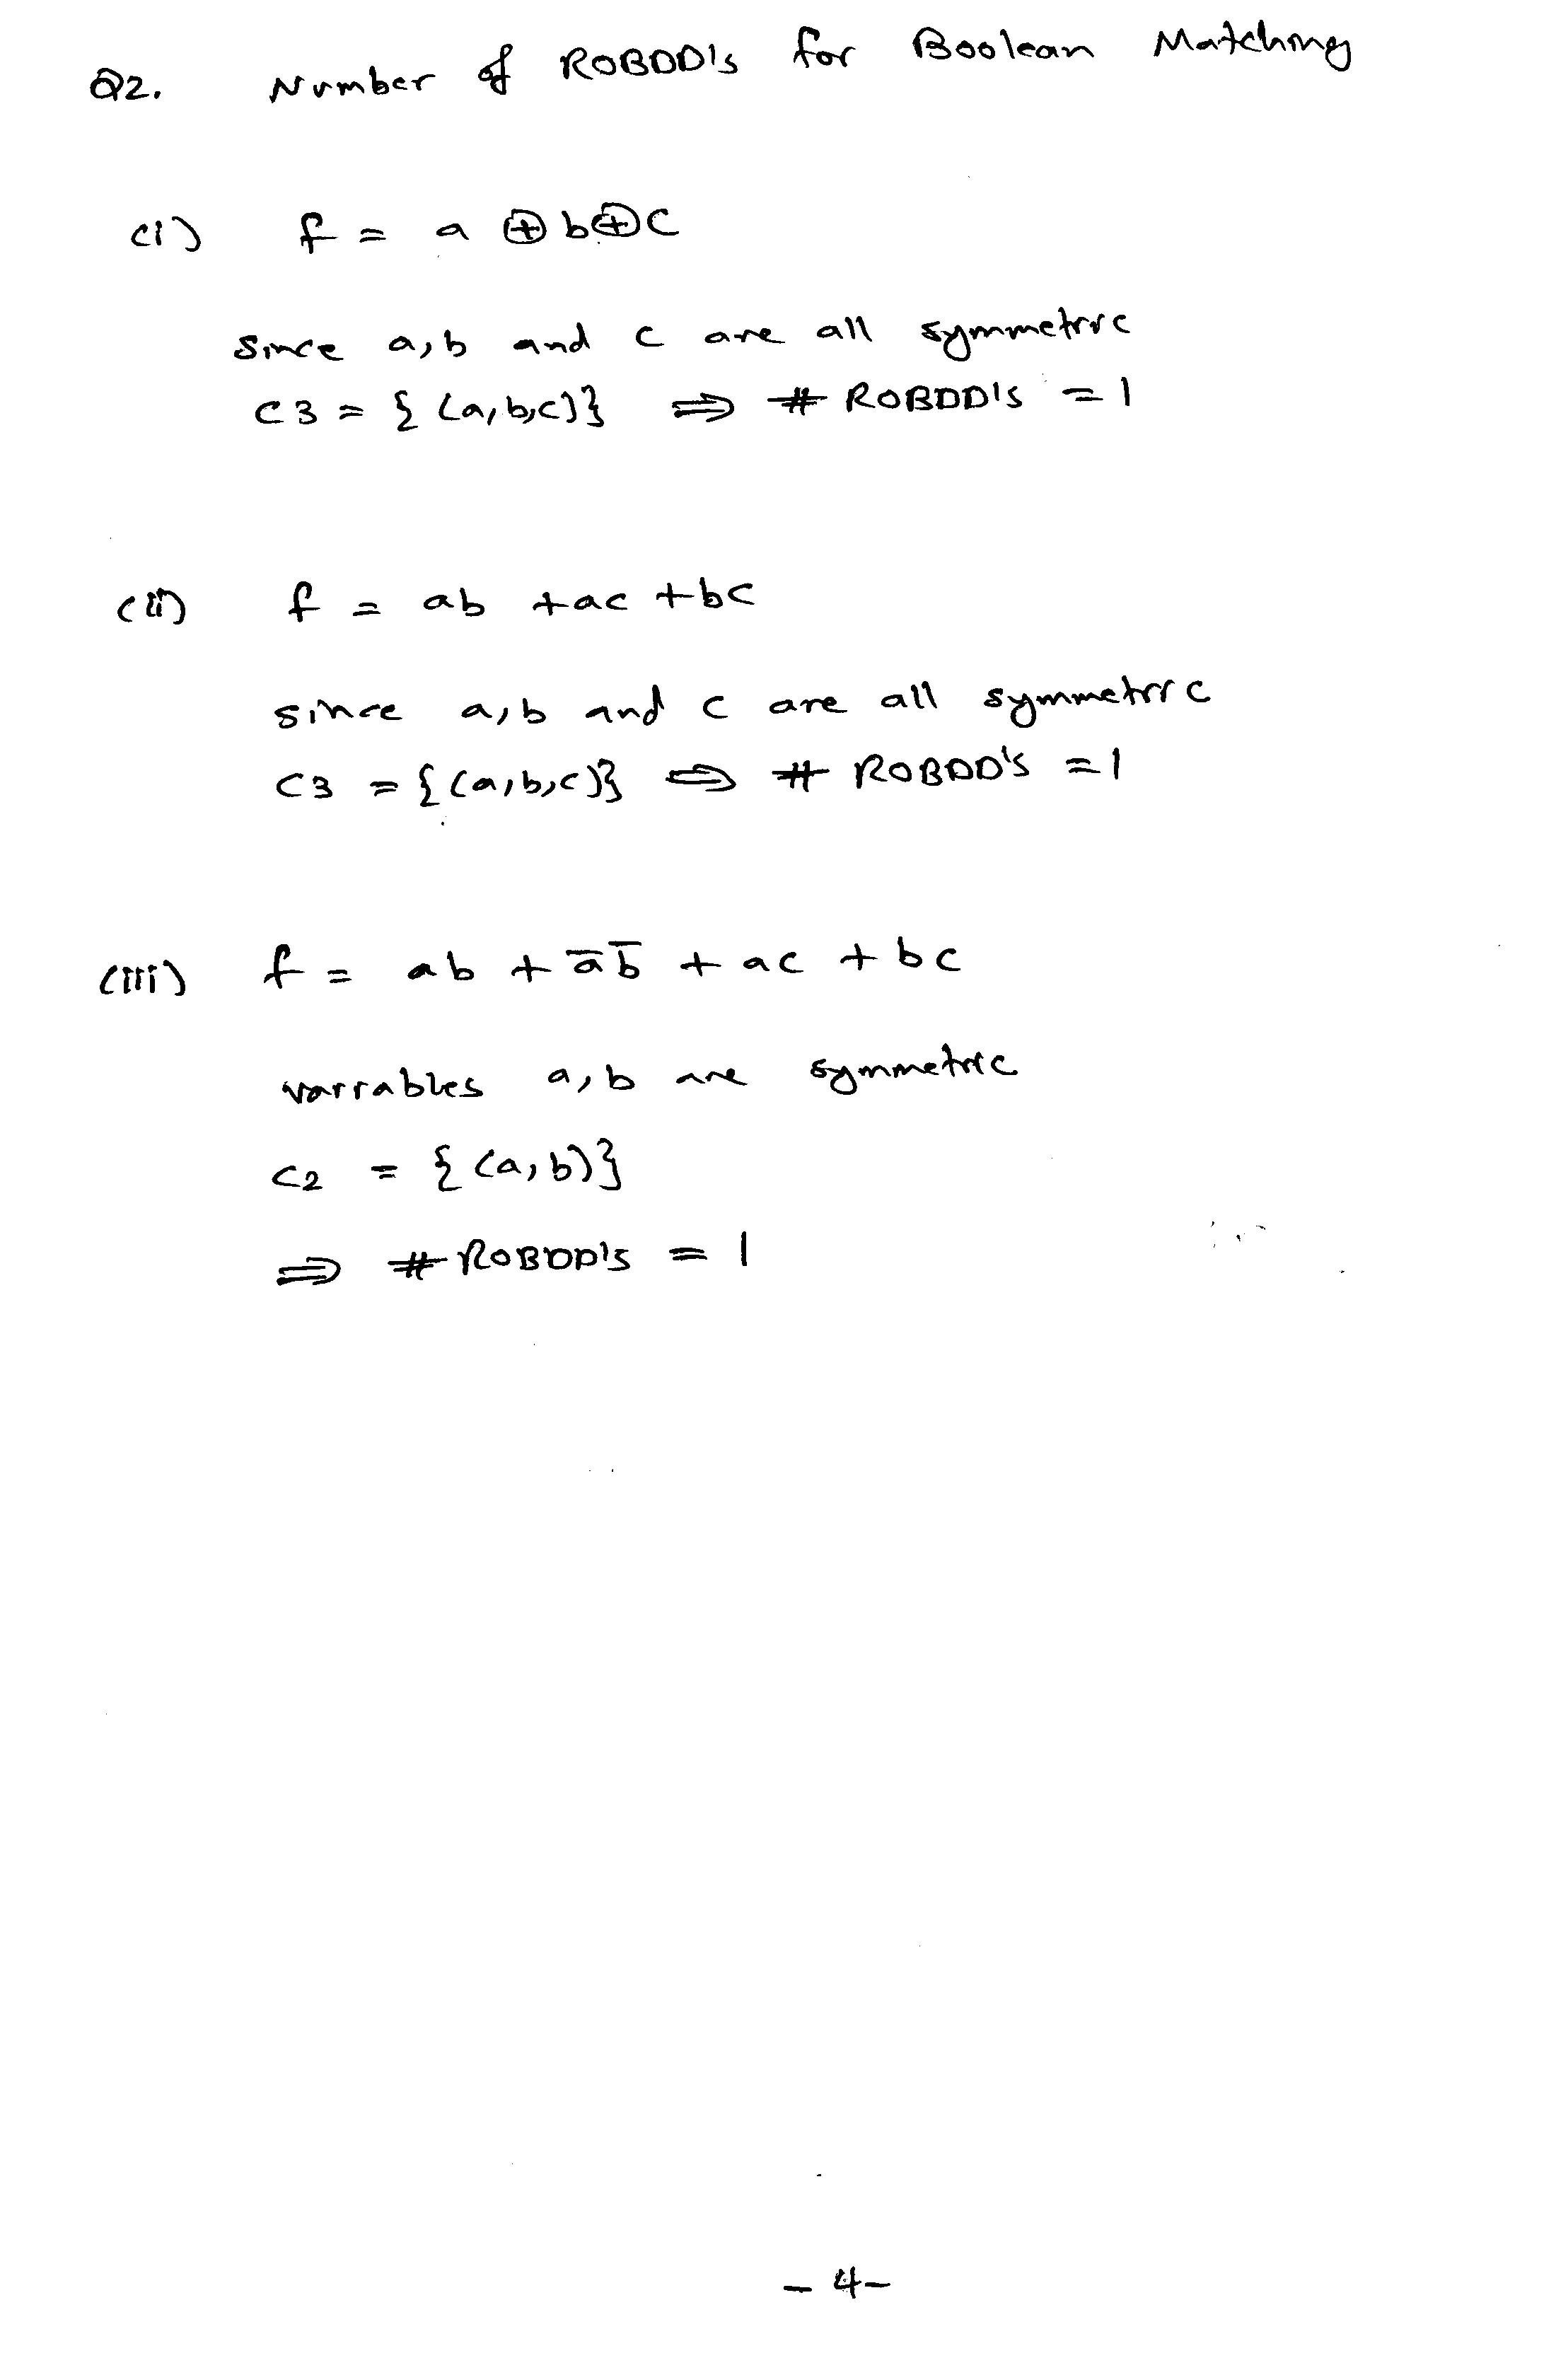 Q2. Number of ROBDD's for Boolean Matching
(i) f = a ⊕ b ⊕ c
Since a,b and c are all symmetric
C3 = { (a,b,c)} ⇒ # ROBDD's = 1
(ii) f = ab + ac + bc
since a,b and c are all symmetric
C3 = { (a,b,c)} ⇒ # ROBDD's = 1
(iii) f = ab + a̅b̅ + ac + bc
variables a,b are symmetric
C2 = { (a,b)}
⇒ # ROBDD's = 1
- 4 -